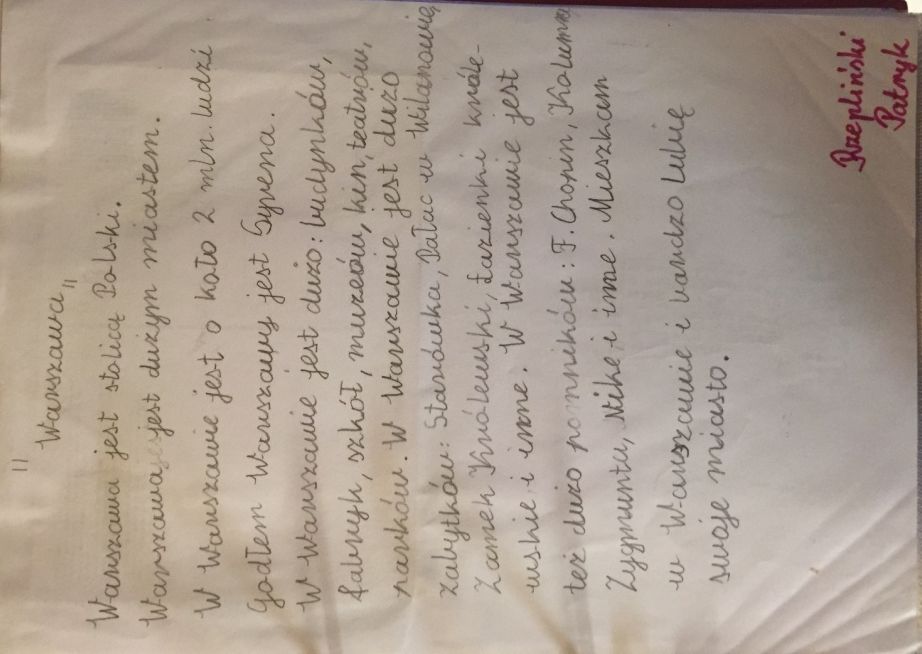 "Warszawa"
Warszawa jest stolicą Polski.
Warszawa jest dużym miastem.
W Warszawie jest o koło 2 mln. ludzi
Godłem Warszawy jest Syrena.
W Warszawie jest dużo: budynków,
fabryk, szkół, muzeów, kin, teatrów,
parków. W Warszawie jest dużo
zabytków: Starówka, Pałac w Wilanowie,
Zamek Królewski, Łazienki Króle-
wskie i inne. W Warszawie jest
też dużo pomników: F. Chopin, Kolumna
Zygmunta, Nike i inne. Mieszkam
w Warszawie i bardzo lubię
swoje miasto.
Rzepliński
Patryk